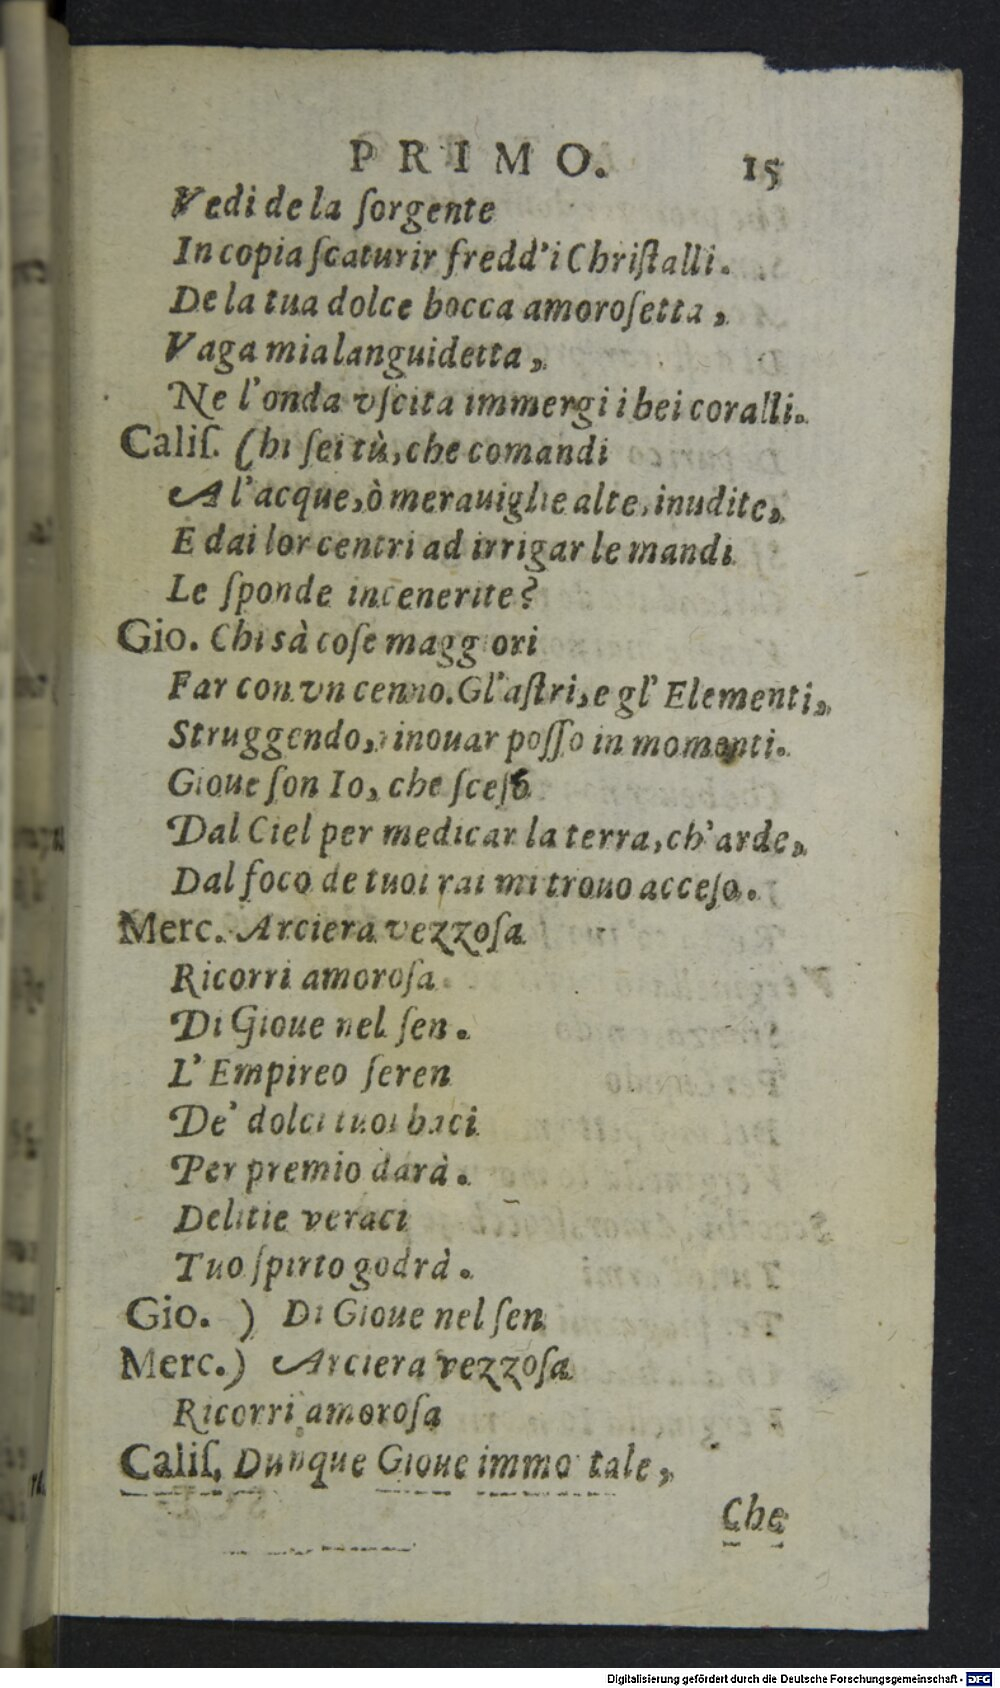 PRIMO. 15
Vedi de la ſorgente
In copia ſcaturir fredd'i Chriſtalli.
De la tua dolce bocca amoroſetta,
Vaga mia languidetta,
Ne l'onda vſcita immergi i bei coralli.
Caliſ. Chi ſei tù, che comandi
A l'acque, ò merauiglie alte, inudite,
E dai lor centri ad irrigar le mandi
Le ſponde incenerite?
Gio. Chi sà coſe maggiori
Far con vn cenno. Gl'aſtri, e gl'Elementi,
Struggendo, rinouar poſſo in momenti.
Gioue ſon Io, che ſceſo
Dal Ciel per medicar la terra, ch'arde,
Dal foco de tuoi rai mi trouo acceſo.
Merc. Arciera vezzoſa
Ricorri amoroſa
Di Gioue nel ſen.
L'Empireo ſeren
De' dolci tuoi baci
Per premio darà.
Delitie veraci
Tuo ſpirto godrà.
Gio. ) Di Gioue nel ſen
Merc.) Arciera vezzoſa
Ricorri amoroſa
Caliſ. Dunque Gioue immortale,
Che
Digitalisierung gefördert durch die Deutsche Forschungsgemeinschaft - DFG